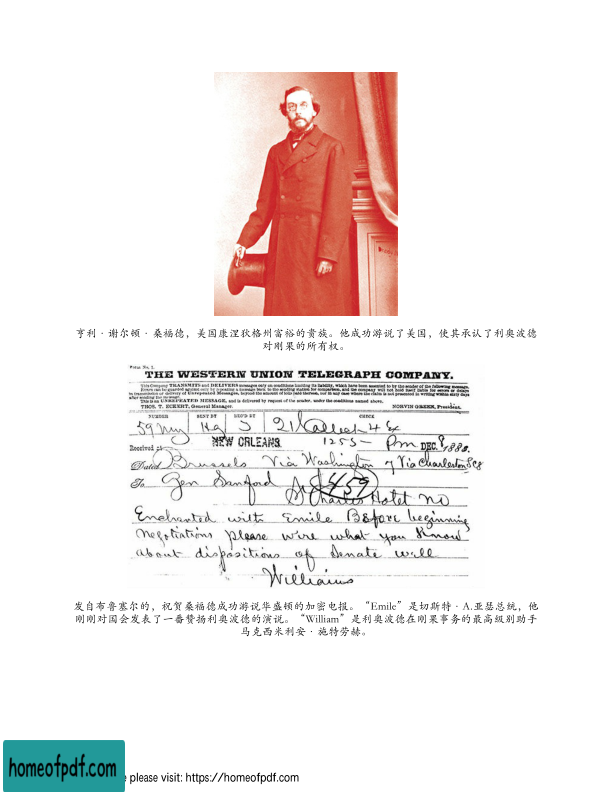 亨利·谢尔顿·桑福德，美国康涅狄格州富裕的贵族。他成功游说了美国，使其承认了利奥波德
对刚果的所有权。
Form No. 1.
THE WESTERN UNION TELEGRAPH COMPANY.
This Company TRANSMITS and DELIVERS messages only on conditions limiting its liability, which have been assented to by the sender of the following message.
Errors can be guarded against only by repeating a message back to the sending station for comparison, and the company will not hold itself liable for errors or delays
in transmission or delivery of Unrepeated Messages, beyond the amount of tolls paid thereon, nor in any case where the claim is not presented in writing within sixty days
after sending the message.
This is an UNREPEATED MESSAGE, and is delivered by request of the sender, under the conditions named above.
THOS. T. ECKERT, General Manager. NORVIN GREEN, President.
NUMBER SENT BY REC'D BY CHECK
59 Ny Ha S 21
Received at NEW ORLEANS. 1253 Pm DEC. 9 188
Dated Brussels Via Washington Via Charleston SC 8
To Gen Sanford 459
St Charles Hotel NO
Enchanted with Emile Before beginning
Negotiations please wire what you Know
about dispositions of Senate will
Williams
发自布鲁塞尔的，祝贺桑福德成功游说华盛顿的加密电报。“Emile”是切斯特·A.亚瑟总统，他
刚刚对国会发表了一番赞扬利奥波德的演说。“William”是利奥波德在刚果事务的最高级别助手
马克西米利安·施特劳赫。
homeofpdf.com
e please visit: https://homeofpdf.com